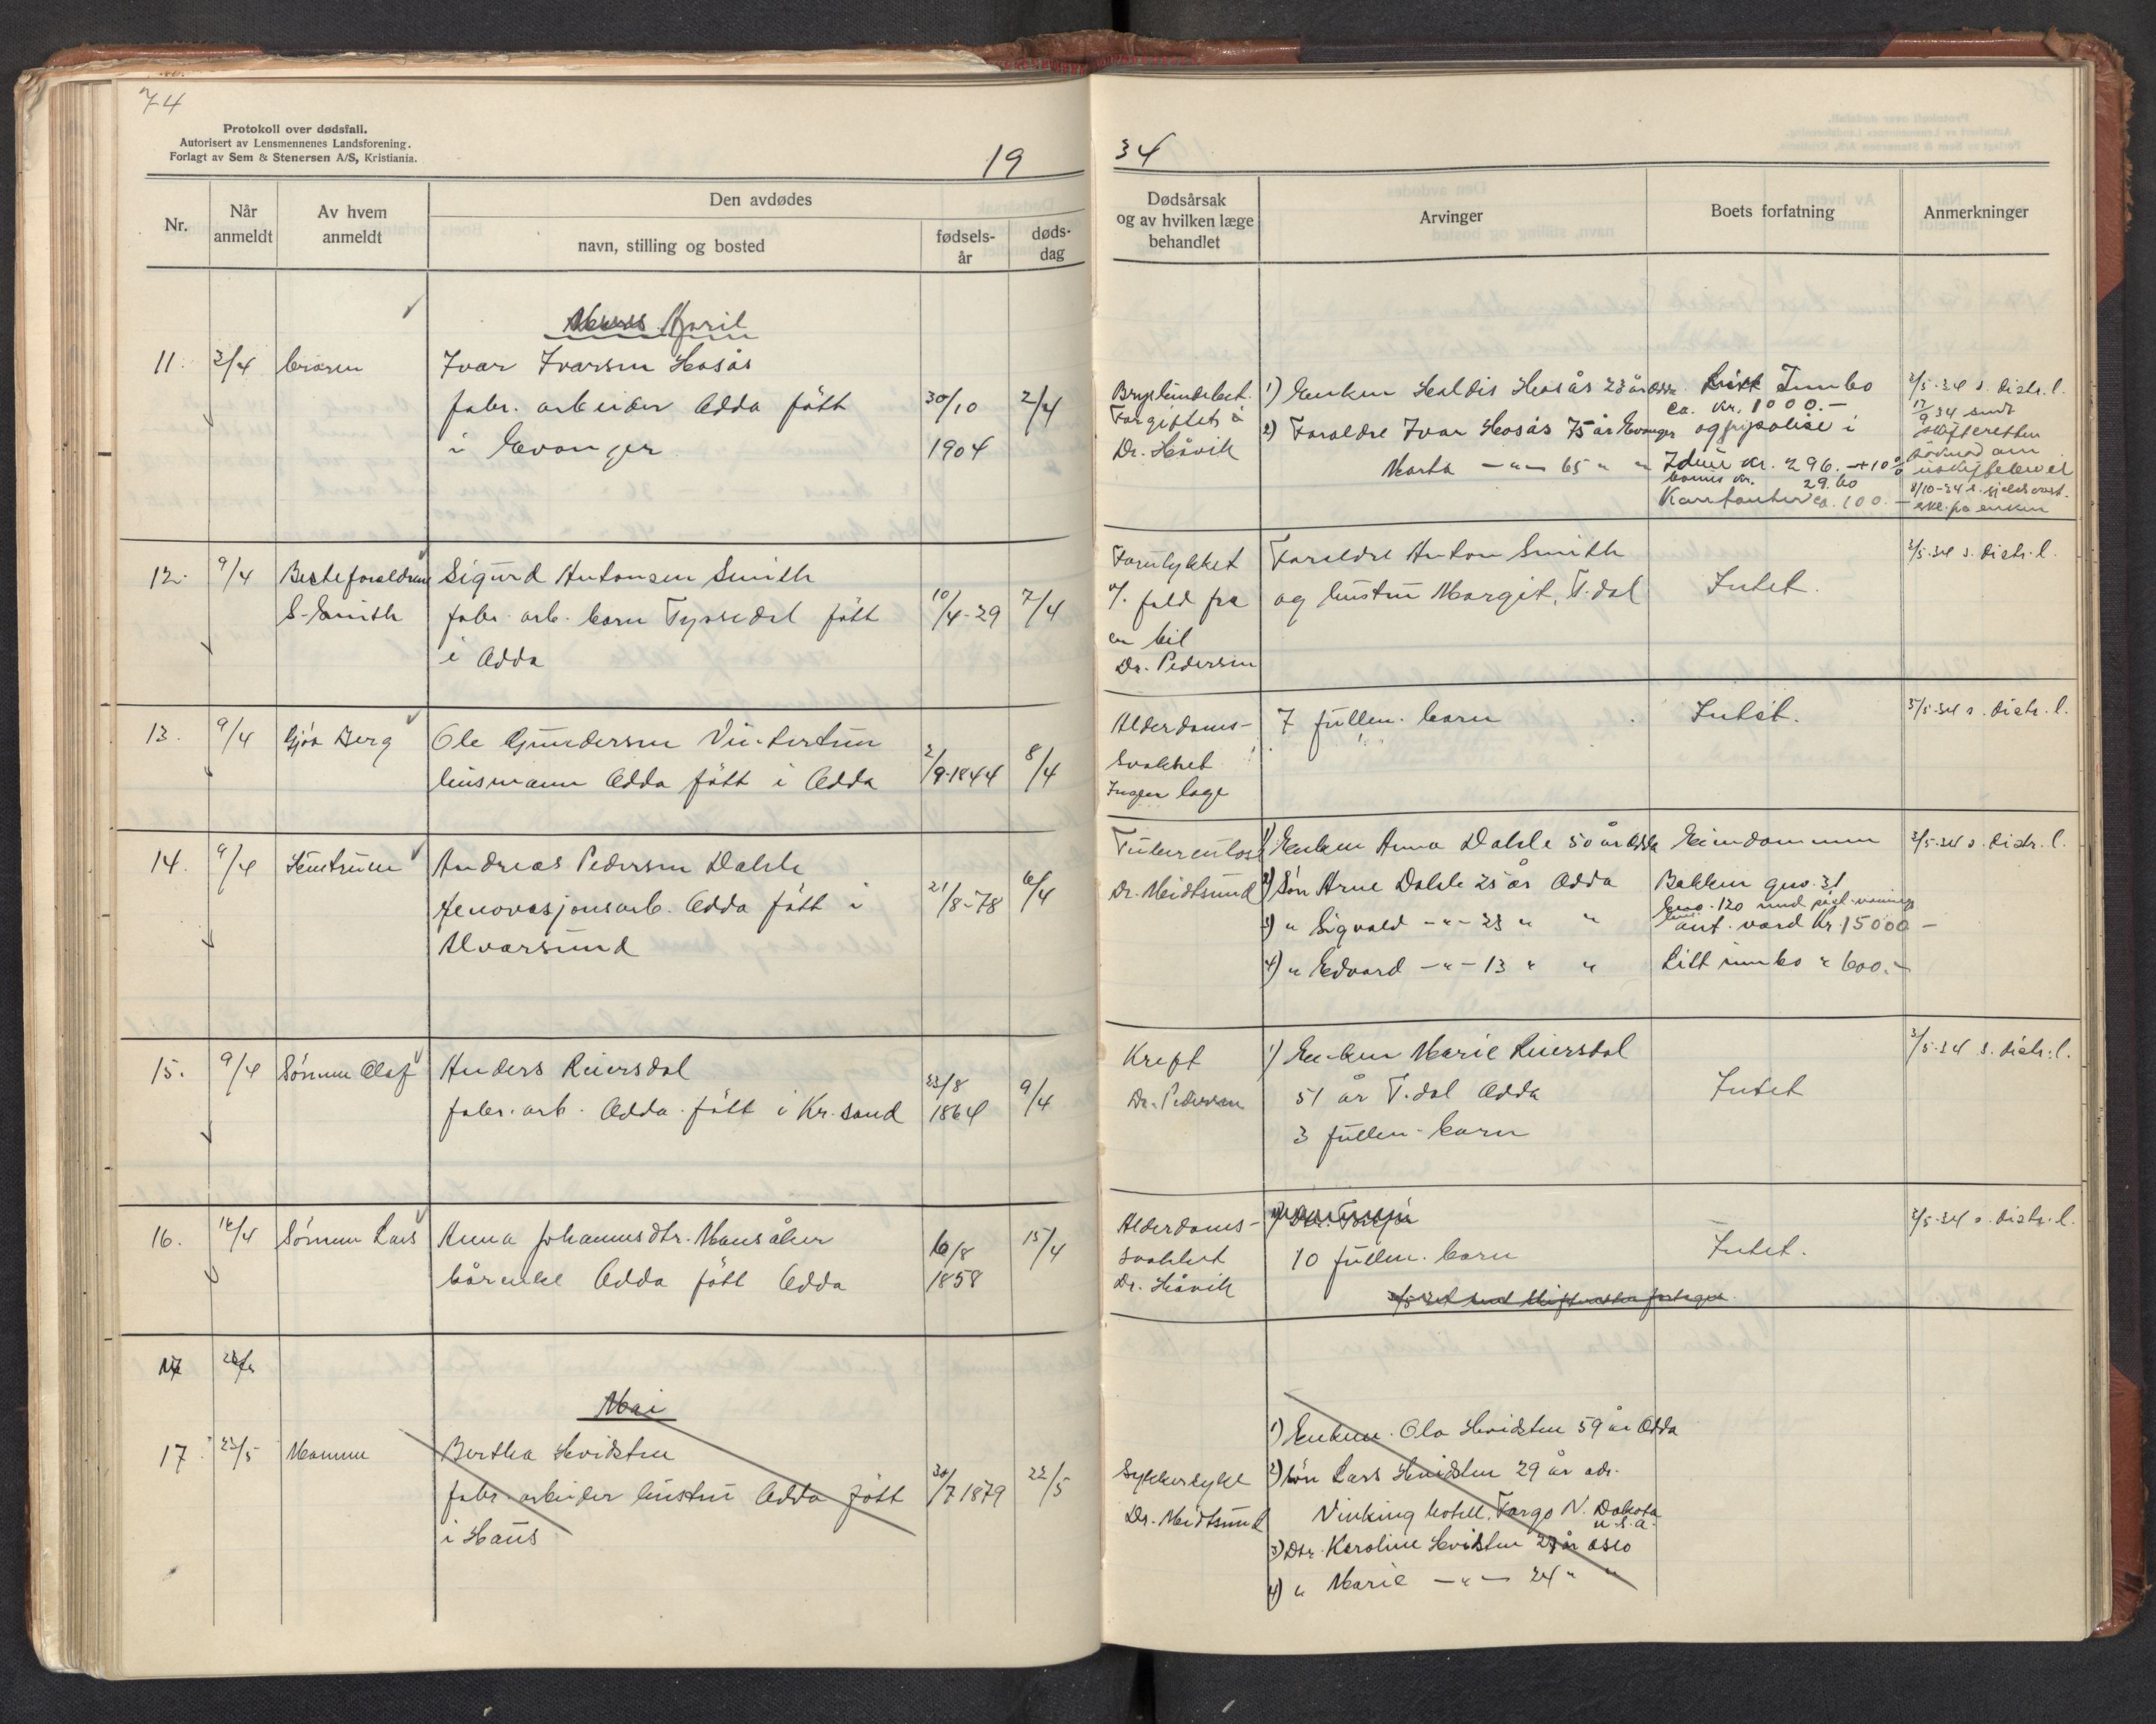 74
Protokoll over dødsfall.
Autorisert av Lensmennenes Landsforening.
Forlagt av Sem & Stenersen A/S, Kristiania.
19
34
Nr.
Når anmeldt
Av hvem anmeldt
Den avdødes
navn, stilling og bosted
fødsels-år
døds-dag
Dødsårsak
og av hvilken læge
behandlet
Arvinger
Boets forfatning
Anmerkninger
April
11. 3/4 broren
Ivar Ivarsen Hosås
fabr. arbeider Odda født
i Evanger
30/10
1904
2/4
Forgiftet
Dr. Håvik
1) Enken Haldis Hosås 23 år Odda
2) Foreldre Ivar Hosås 75 år Evanger
Marta —„— 65 „ „
Innbo
ca. kr. 1000.-
og polise i
Idun kr. 296.- + 10%
bonus kr. 29.60
ca. 100.-
3/5-34 s. distr. l.
17/9 34 sendt
skifteretten
søknad om
8/10-34 s.
på enken
12. 9/4 Besteforeldrene
S. Smith
Sigurd Antonsen Smith
fabr. arb. barn Tyssedal født
i Odda
10/4-29
7/4
Forulykket
v. fald fra
en bil
Dr. Pedersen
Foreldre Anton Smith
og hustru Margit, T.dal
Intet.
3/5-34 s. distr. l.
13. 9/4 Gjøa Berg
Ole Gundersen Vintertun
husmann Odda født i Odda
2/9-1844
8/4
Alderdoms-
svakhet
Ingen læge
7 fullm. barn
Intet.
3/5-34 s. distr. l.
14. 9/4
Andreas Pedersen Dahle
renovasjonsarb. Odda født i
Alvørsund
21/8-78
6/4
Tuberculose
Dr. Meidtsund
1) Enken Anna Dahle 50 år Odda
2) Søn Arne Dahle 25 år Odda
3) „ Sigvald —„— 23 „ „
4) „ Edvard —„— 13 „ „
Eiendommen
Bakken gno. 31
bno. 120 med
ant. verd kr. 15000.-
Litt innbo „ 600.-
3/5-34 s. distr. l.
15. 9/4 Sønnen Olaf
Anders Reiersdal
fabr. arb. Odda født i Kr.sand
23/8
1864
9/4
Kreft
Dr. Pedersen
1) Enken Marie Reiersdal
51 år T.dal Odda
3 fullm. barn
Intet
3/5-34 s. distr. l.
16. 16/4 Sønnen Lars
Anna Johannesdtr. Mannsåker
kårenke Odda født Odda
16/8
1858
15/4
Alderdoms-
svakhet
Dr. Håvik
10 fullm. barn
Intet.
3/5-34 s. distr. l.
17
Mai
17. 23/5 Mannen
Bertha Hvidsten
fabr. arbeider hustru Odda født
i Haus
30/7 1879
22/5
Sukkersyke
Dr. Meidtsund
1) Enkem. Ola Hvidsten 59 år Odda
2) Søn Lars Hvidsten 29 år adr.
Vinking hotell, Fargo N. Dakota
U.S.A.
3) Dtr. Karoline Hvidsten 27 år Oslo
4) „ Marie —„— 24 „ „